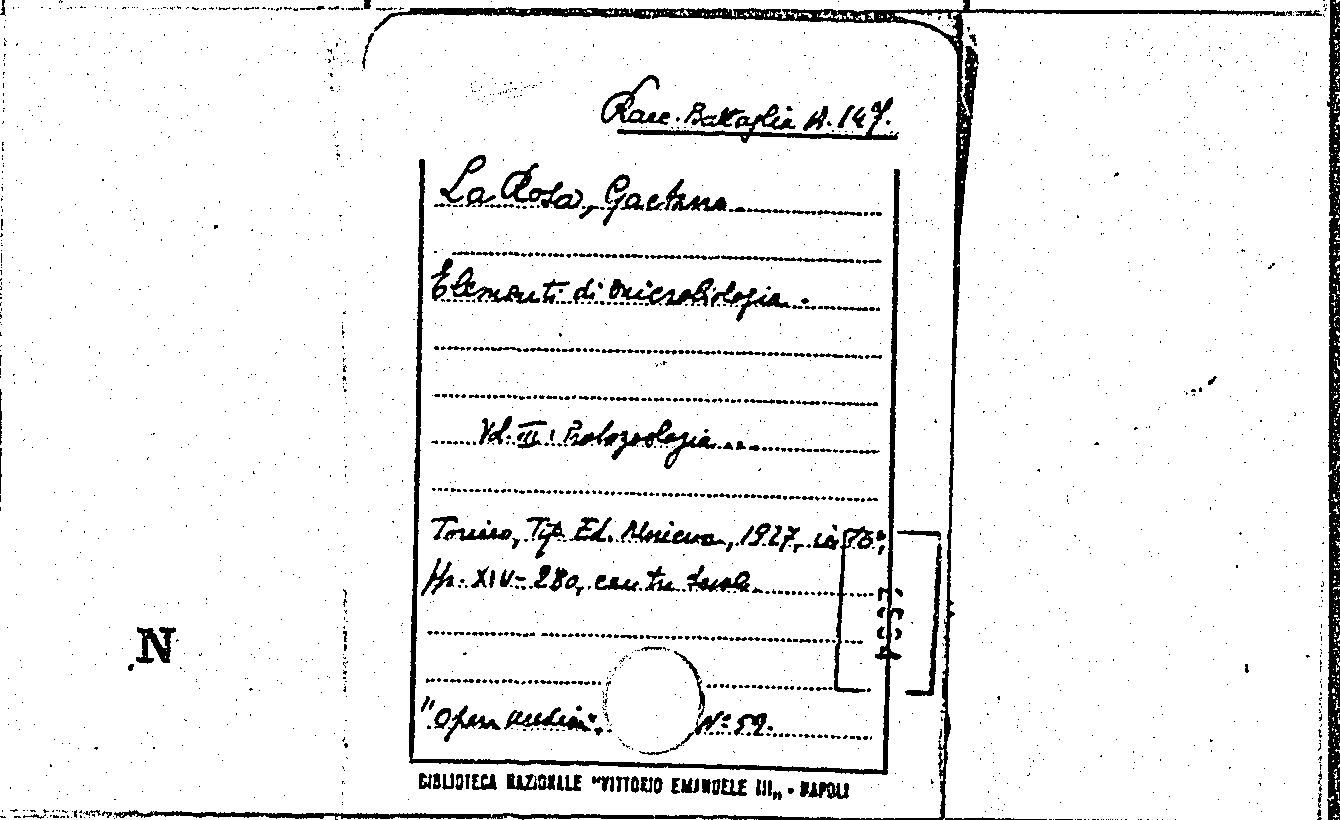 Racc. Battaglia A. 147.
La Rosa, Gaetano.
Elementi di microbiologia.
Vol. III: Protozoologia...
Torino, Tip. Ed. Minerva, 1927, in 16º;
pp. XIV-280, con tavole.
N
"Opera omnia", Nº 59.
BIBLIOTECA NAZIONALE "VITTORIO EMANUELE III„ - NAPOLI